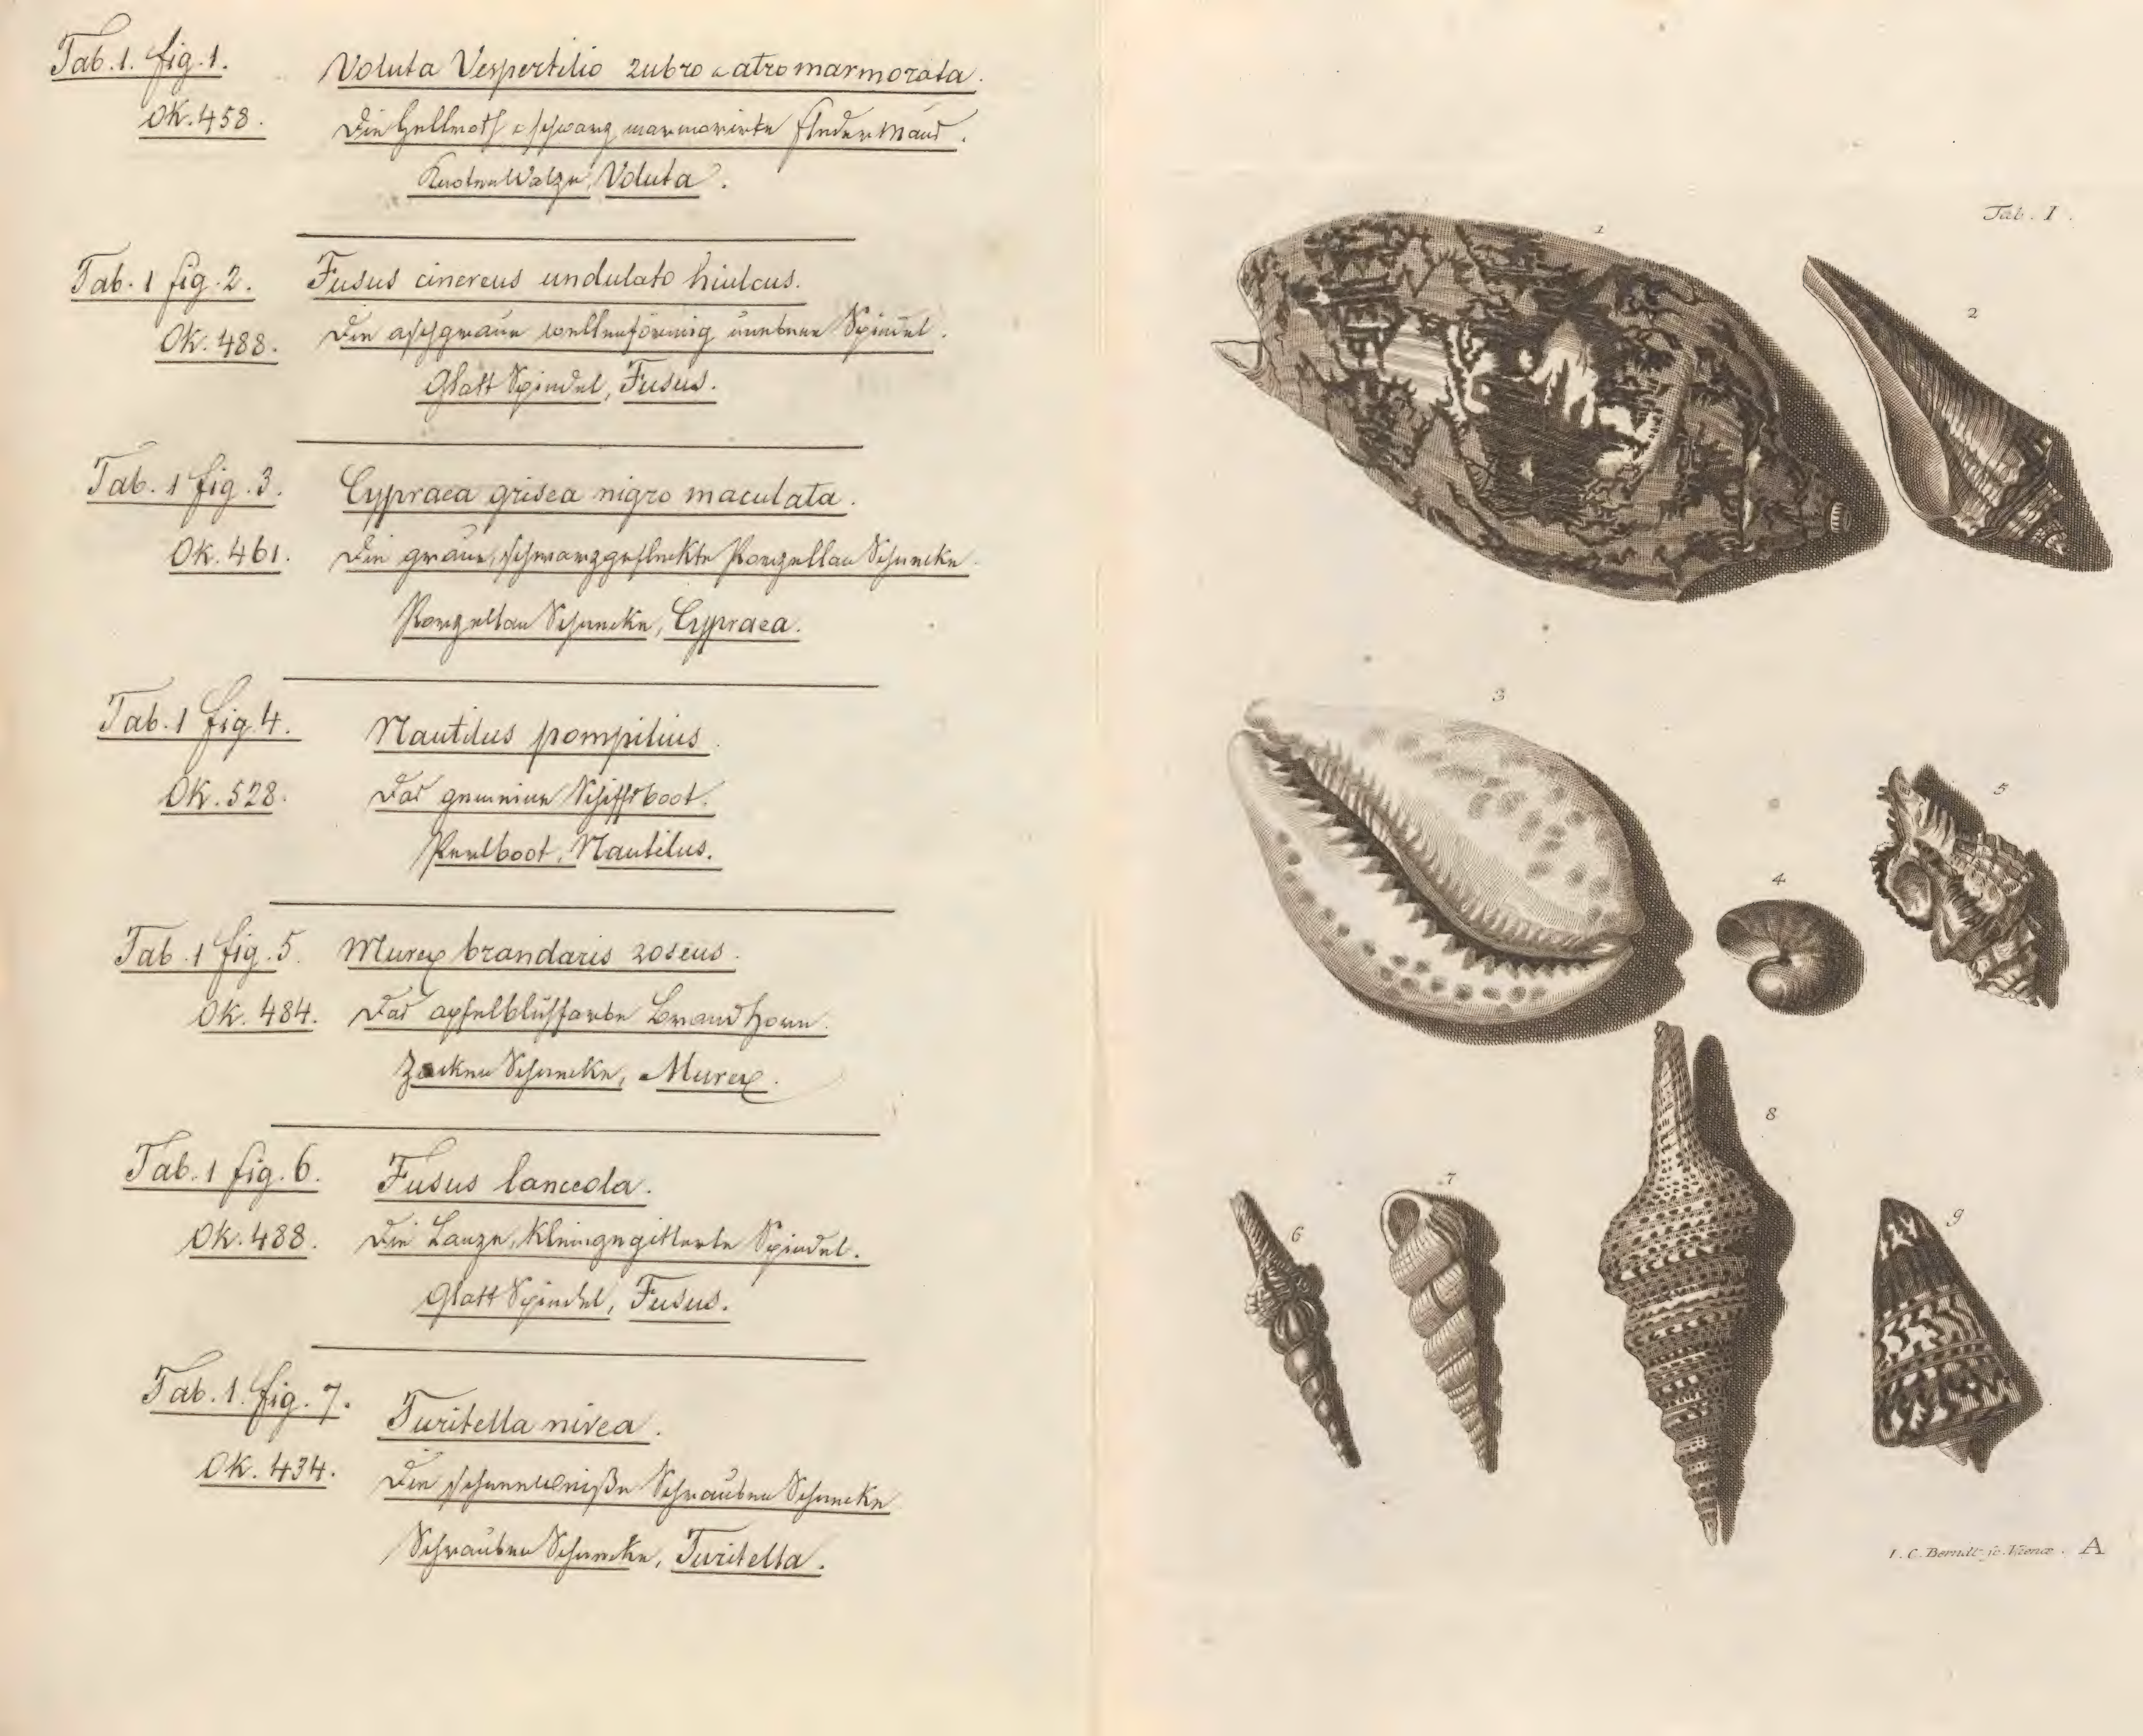 Tab. 1. fig. 1.
Voluta Vespertilio rubro & atro marmorata.
OK. 458.
Die hellroth & schwarz marmorirte Fledermaus.
Knoten Walze, Voluta.
Tab. 1 fig. 2.
Fusus cinereus undulato hiulcus.
OK. 488.
Die aschgraue wellenförmig unebene Spindel.
Glatt Spindel, Fusus.
Tab. 1 fig. 3.
Cypraea grisea nigro maculata.
OK. 461.
Die graue, schwarzgeflekte Porzellan Schnecke.
Porzellan Schnecke, Cypraea.
Tab. 1 fig. 4.
Nautilus pompilius.
OK. 528.
Das gemeine Schiffsboot.
Perlboot, Nautilus.
Tab. 1 fig. 5.
Murex brandaris roseus.
OK. 484.
Das apfelblüthfarbe Brandhorn.
Zacken Schnecke, Murex.
Tab. 1 fig. 6.
Fusus lanceola.
OK. 488.
Die Lanze, kleingegitterte Spindel.
Glatt Spindel, Fusus.
Tab. 1. fig. 7.
Turitella nivea.
OK. 434.
Die schneeweiße Schrauben Schnecke
Schrauben Schnecke, Turitella.
Tab. I.
1
2
3
4
5
6
7
8
9
I. C. Berndt sc. Vienæ. A